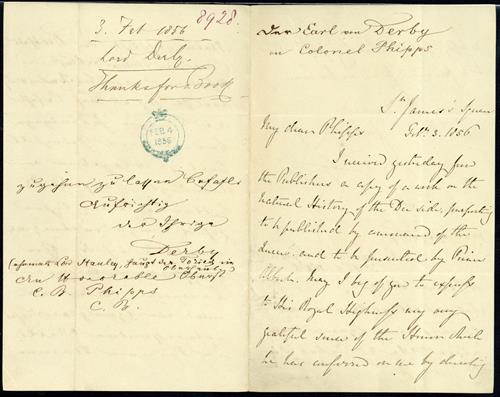 3. Feb 1856
8928.
Lord Derby
Thanks for a Book
FEB 4
1856
zugehen zu lassen befahl
Aufrichtig
der Ihrige
Derby
Lord Stanley, Haupt der Tories im
Oberhaus
An Honorable Oberst
C. B. Phipps
C. B.
Der Earl von Derby
an Colonel Phipps
St. James's Square
My dear Phipps Feb. 3. 1856
I received yesterday from
the Publishers a copy of a work on the
Natural History of the Dee side, purporting
to be published by command of the
Queen, and to be presented by Prince
Albert. May I beg of you to express
to His Royal Highness my very
grateful sense of the Honor which
he has conferred on me by directing